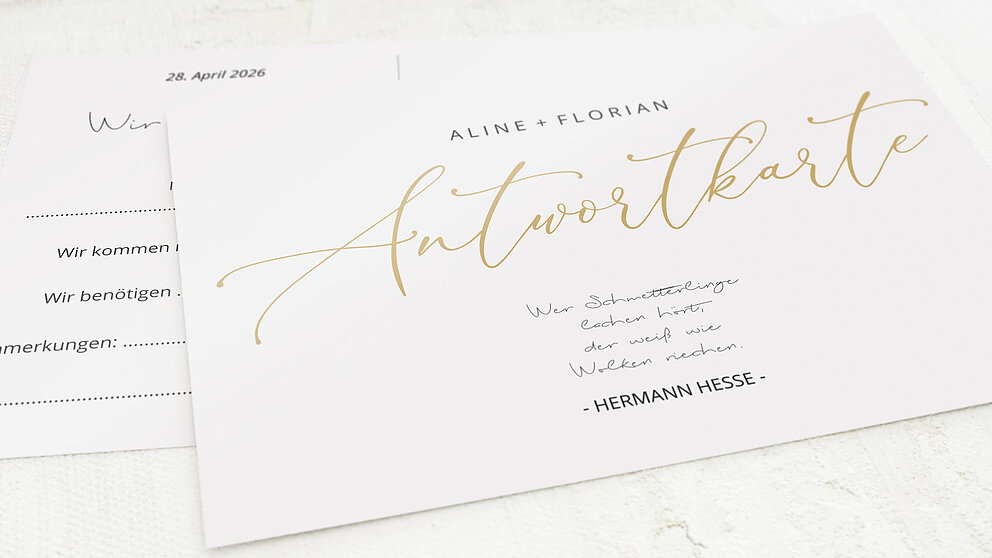 28. April 2026
Wir
Wir kommen
Wir benötigen .
nmerkungen: ...............
ALINE + FLORIAN
Antwortkarte
Wer Schmetterlinge
lachen hört,
der weiß wie
Wolken riechen.
- HERMANN HESSE -